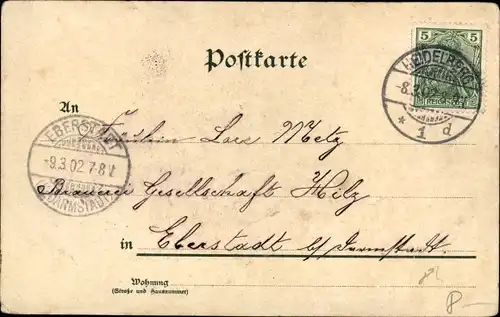 Postkarte
5 5
REICHSPOST
HEIDELBERG
8.3.02
* 1 d
An
Fräulein Loes Metz
EBERSTADT
-9.3.02 7-8V
(DARMSTADT)
Brauerei Gesellschaft Hilz
in Eberstadt b/ Darmstadt.
Wohnung
(Straße und Hausnummer)
P-